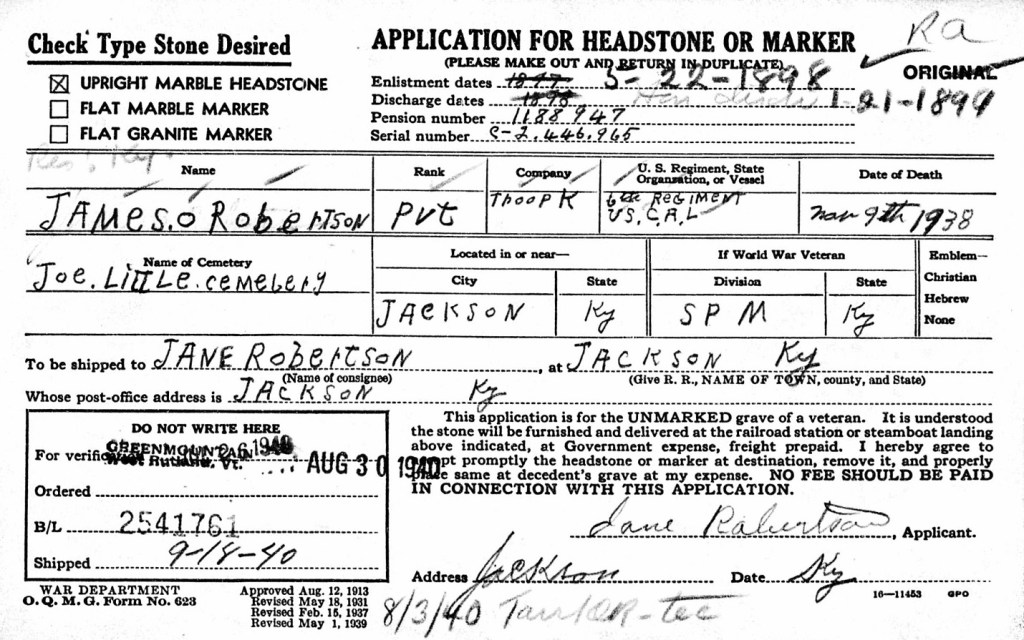 Check Type Stone Desired
☒ UPRIGHT MARBLE HEADSTONE
☐ FLAT MARBLE MARKER
☐ FLAT GRANITE MARKER
APPLICATION FOR HEADSTONE OR MARKER
(PLEASE MAKE OUT AND RETURN IN DUPLICATE)
RA
ORIGINAL
Enlistment dates 1897 5-22-1898
Discharge dates 1898 Hon disch 1-21-1899
Pension number 1188947
Serial number C-2.446.965
Res: Ky.
Name
Rank
Company
U. S. Regiment, State Organization, or Vessel
Date of Death
JAMES.O RobeRTSON
Pvt
Thoop K
6th REGIMENT
U.S.C.A.L
nov 9th 1938
Name of Cemetery
Joe. Little. cemetery
Located in or near—
City
State
JACKSON
Ky
If World War Veteran
Division
State
S P M
Ky
Emblem—
Christian
Hebrew
None
To be shipped to JANE RobeRTSON, at JACKSON Ky
(Name of consignee)
(Give R. R., NAME OF TOWN, county, and State)
Whose post-office address is JACKSON Ky
DO NOT WRITE HERE
GREENMOUNTAIN
For verific
West Rutland, Vt.
6 1940
AUG 30 1940
Ordered
B/L 2541761
Shipped 9-18-40
This application is for the UNMARKED grave of a veteran. It is understood
the stone will be furnished and delivered at the railroad station or steamboat landing
above indicated, at Government expense, freight prepaid. I hereby agree to
pt promptly the headstone or marker at destination, remove it, and properly
place same at decedent's grave at my expense. NO FEE SHOULD BE PAID
IN CONNECTION WITH THIS APPLICATION.
Jane Robertson, Applicant.
Address Jackson Date Ky
WAR DEPARTMENT
O. Q. M. G. Form No. 623
Approved Aug. 12, 1913
Revised May 18, 1931
Revised Feb. 15, 1937
Revised May 1, 1939
16—11453 GPO
8/3/40